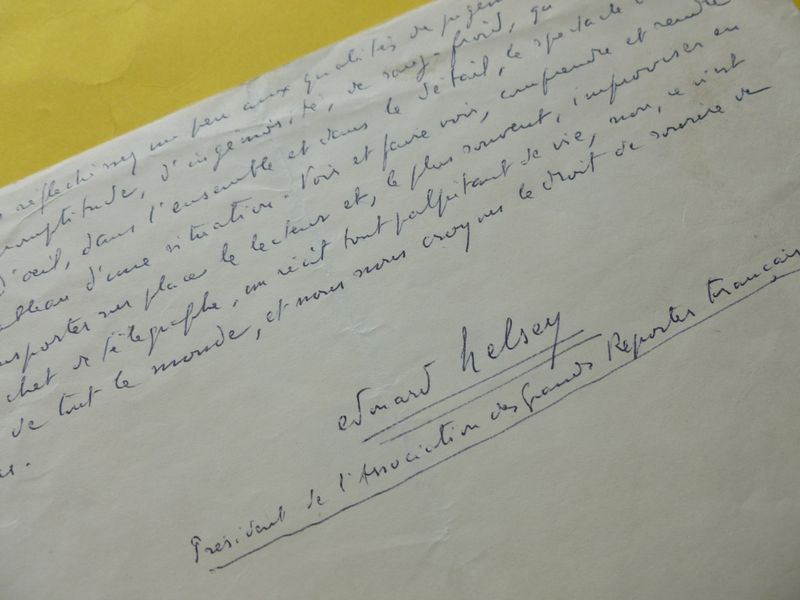 réflechissez un peu aux qualités de
promptitude, d'ingéniosité, de sang-froid, qu
d'oeil, dans l'ensemble et dans le détail, le spectacle
tableau d'une situation. Voir et faire voir, comprendre et rendre
transporter sur place le lecteur et, le plus souvent, improviser en
chet de télégraphe, un récit tout palpitant de vie, non, ce n'est
de tout le monde, et nous nous croyons le droit de sourire de
edouard helsey
Président de l'Association des Grands Reporters Français